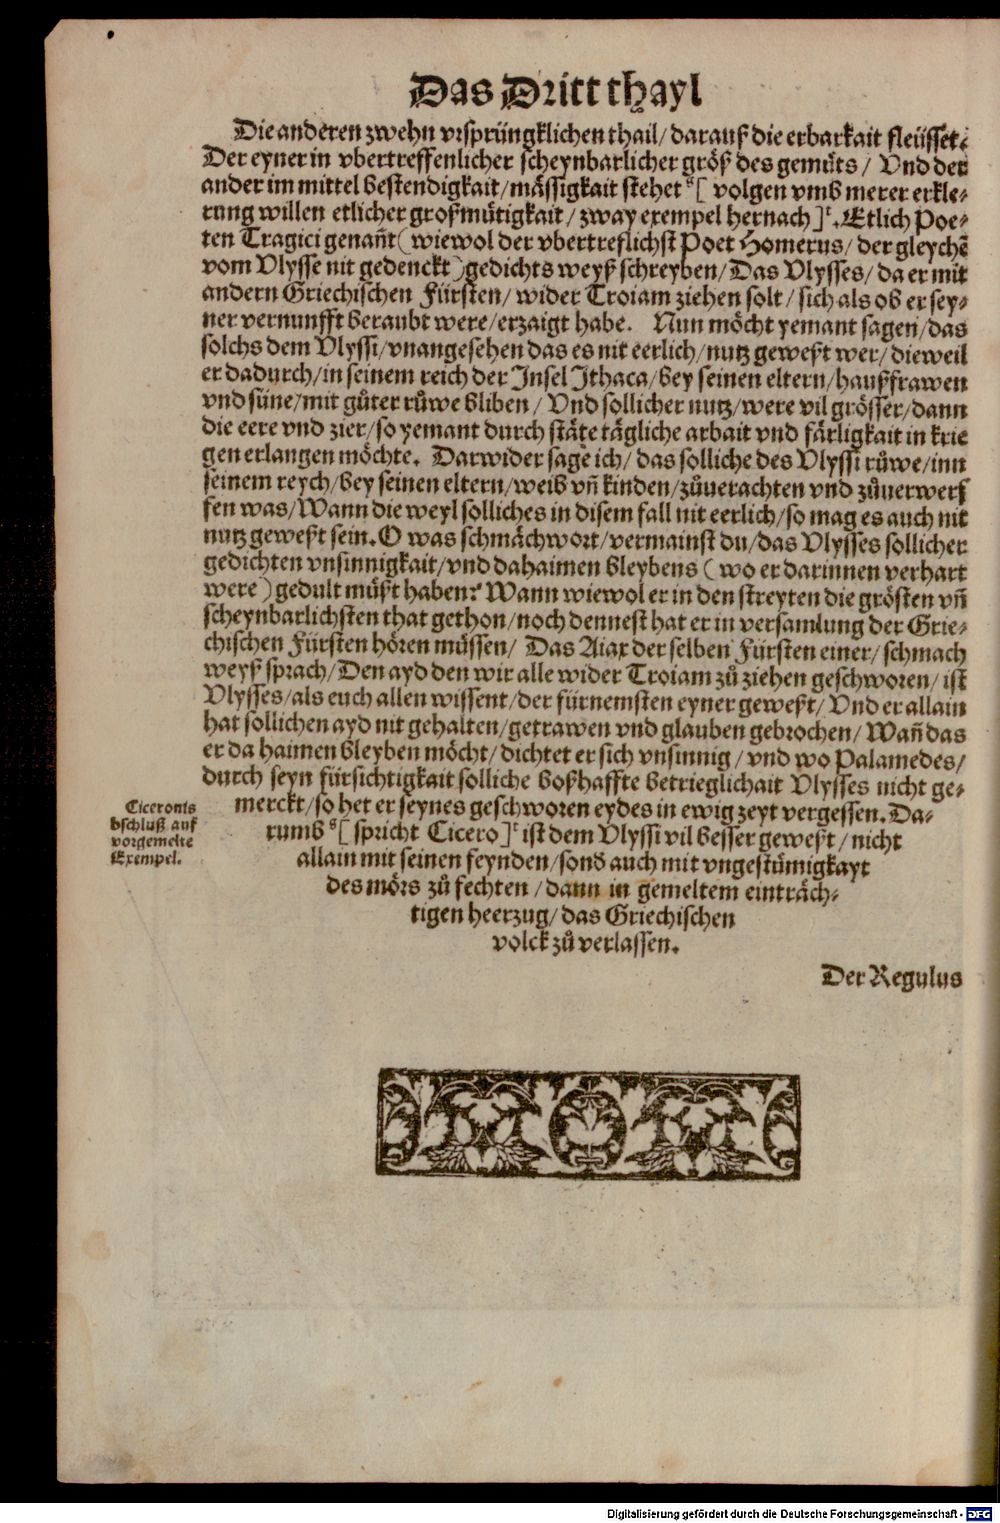 Das Dritt thayl
Die anderen zwehn vrsprüngklichen thail/ darauß die erbarkait fleüsset.
Der eyner in vbertreffenlicher scheynbarlicher größ des gemůts/ Vnd der
ander im mittel bestendigkait/mässigkait stehet [ volgen vmb merer erkle-
rung willen etlicher großmůtigkait/ zway exempel hernach ]. Etlich Poe-
ten Tragici genañt ( wiewol der vbertreflichst Poet Homerus/ der gleychẽ
vom Vlysse nit gedenckt ) gedichts weyß schreyben/ Das Vlysses/ da er mit
andern Griechischen Fürsten/ wider Troiam ziehen solt/ sich als ob er sey-
ner vernunfft beraubt were/erzaigt habe. Nun möcht yemant sagen/das
solchs dem Vlyssi/vnangesehen das es nit eerlich/nutz geweßt wer/ dieweil
er dadurch/in seinem reich der Insel Ithaca/bey seinen eltern/haußfrawen
vnd süne/mit gůter růwe bliben/ Vnd sollicher nutz/were vil grösser/dann
die eere vnd zier/so yemant durch stäte tägliche arbait vnd färligkait in krie
gen erlangen möchte. Darwider sage ich/ das solliche des Vlyssi růwe/inn
seinem reych/bey seinen eltern/weib vñ kinden/zůuerachten vnd zůuerwerf
fen was/Wann die weyl solliches in disem fall nit eerlich/so mag es auch nit
nutz geweßt sein. O was schmächwort/vermainst du/das Vlysses sollicher
gedichten vnsinnigkait/vnd dahaimen bleybens ( wo er darinnen verhart
were ) gedult müßt haben? Wann wiewol er in den streyten die grösten vñ
scheynbarlichsten that gethon/noch dennest hat er in versamlung der Grie-
chischen Fürsten hören müssen/ Das Aiax der selben Fürsten einer/schmach
weyß sprach/Den ayd den wir alle wider Troiam zů ziehen geschworen/ ist
Vlysses/als euch allen wissent/der fürnemsten eyner geweßt/ Vnd er allain
hat sollichen ayd nit gehalten/getrawen vnd glauben gebrochen/ Wañ das
er da haimen bleyben möcht/dichtet er sich vnsinnig/ vnd wo Palamedes/
durch seyn fürsichtigkait solliche boßhaffte betrieglichait Vlysses nicht ge-
merckt/so het er seynes geschworen eydes in ewig zeyt vergessen. Da-
rumb [ spricht Cicero ] ist dem Vlyssi vil besser geweßt/ nicht
allain mit seinen feynden/sond̃ auch mit vngestůmigkayt
des mörs zů fechten/dann in gemeltem einträch-
tigen heerzug/das Griechischen
volck zů verlassen.
Ciceronis
bschluß auf
vorgemelte
Exempel.
Der Regulus
Digitalisierung gefördert durch die Deutsche Forschungsgemeinschaft - DFG